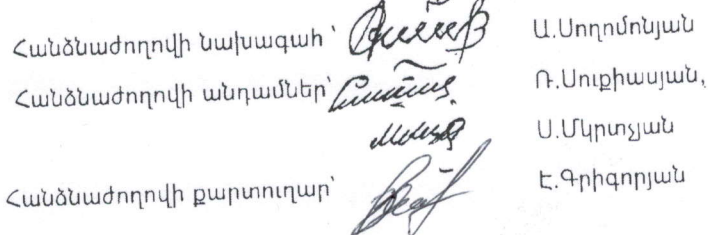 Հանձնաժողովի նախագահ՝ Ա.Սողոմոնյան
Հանձնաժողովի անդամներ՝ Ռ.Սուքիասյան,
Ս.Մկրտչյան
Հանձնաժողովի քարտուղար՝ Է.Գրիգորյան